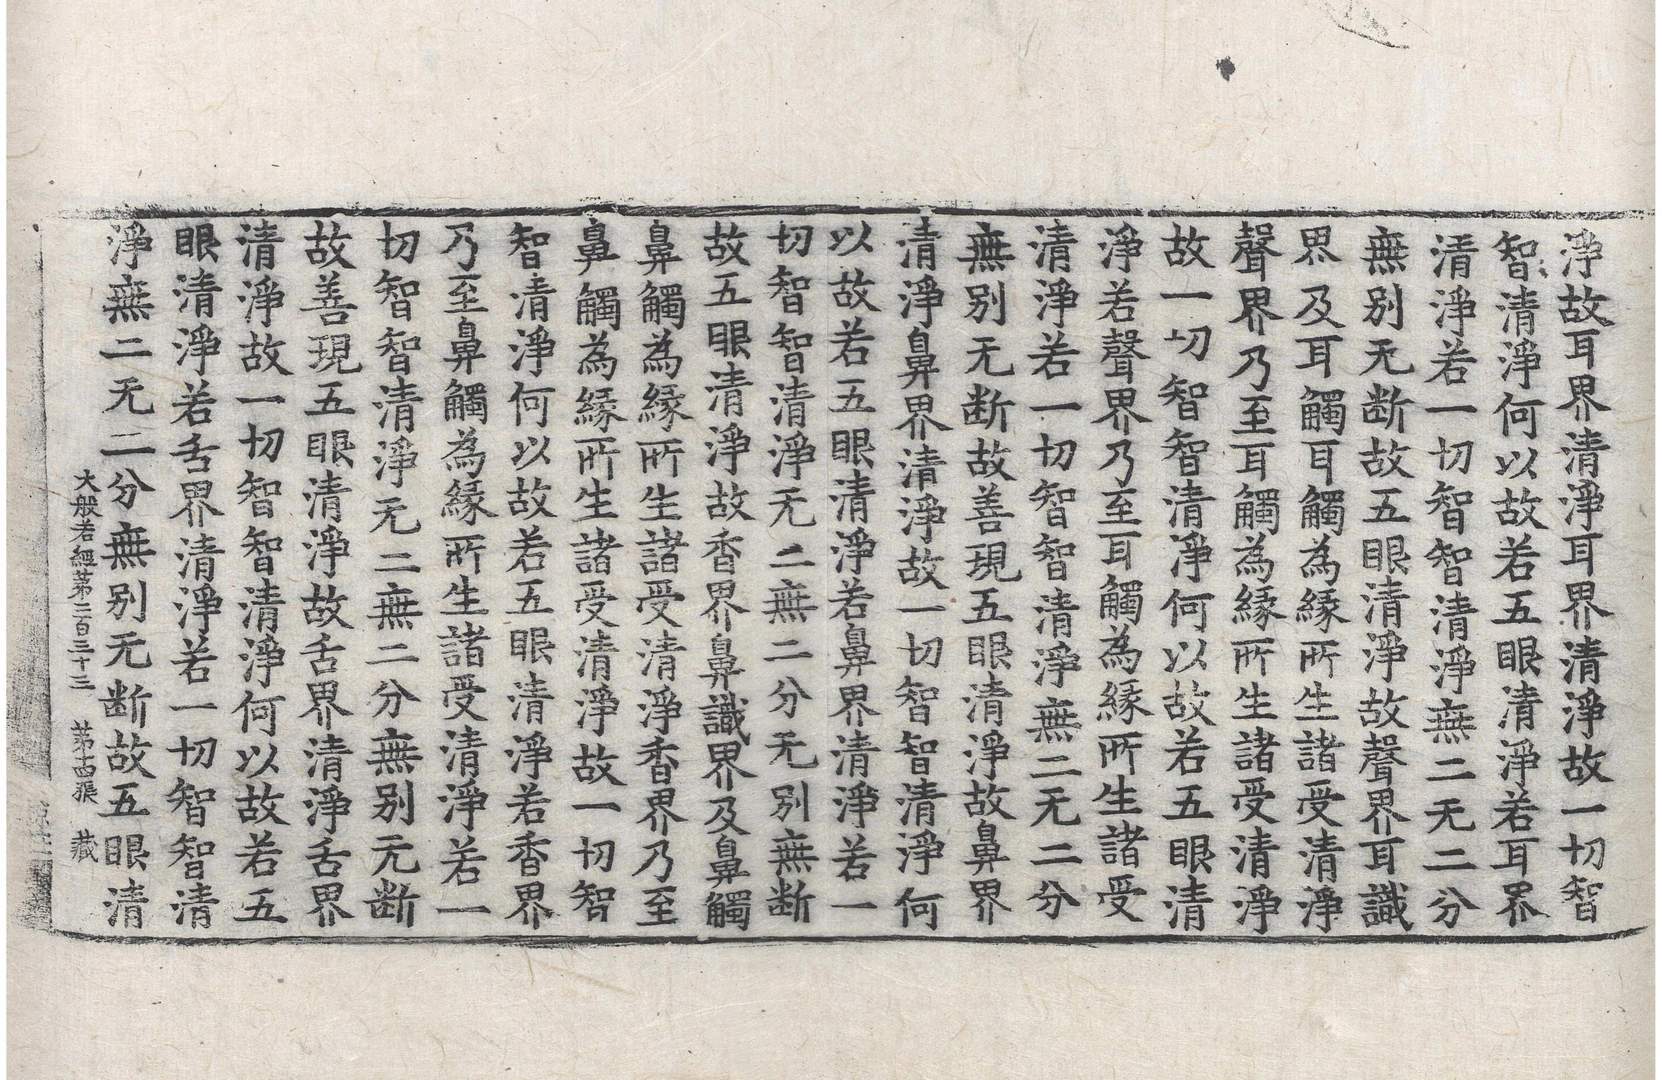 淨故耳界清淨耳界清淨故一切智
智清淨何以故若五眼清淨若耳界
清淨若一切智智清淨無二无二分
無别无断故五眼清淨故聲界耳識
界及耳觸耳觸為緣所生諸受清淨
聲界乃至耳觸為緣所生諸受清淨
故一切智智清淨何以故若五眼清
淨若聲界乃至耳觸為緣所生諸受
清淨若一切智智清淨無二无二分
無别无断故善現五眼清淨故鼻界
清淨鼻界清淨故一切智智清淨何
以故若五眼清淨若鼻界清淨若一
切智智清淨无二無二分无别無断
故五眼清淨故香界鼻識界及鼻觸
鼻觸為緣所生諸受清淨香界乃至
鼻觸為緣所生諸受清淨故一切智
智清淨何以故若五眼清淨若香界
乃至鼻觸為緣所生諸受清淨若一
切智智清淨无二無二分無别无断
故善現五眼清淨故舌界清淨舌界
清淨故一切智智清淨何以故若五
眼清淨若舌界清淨若一切智智清
淨無二无二分無别无断故五眼清
大般若經苐二百三十三 苐十四張 藏